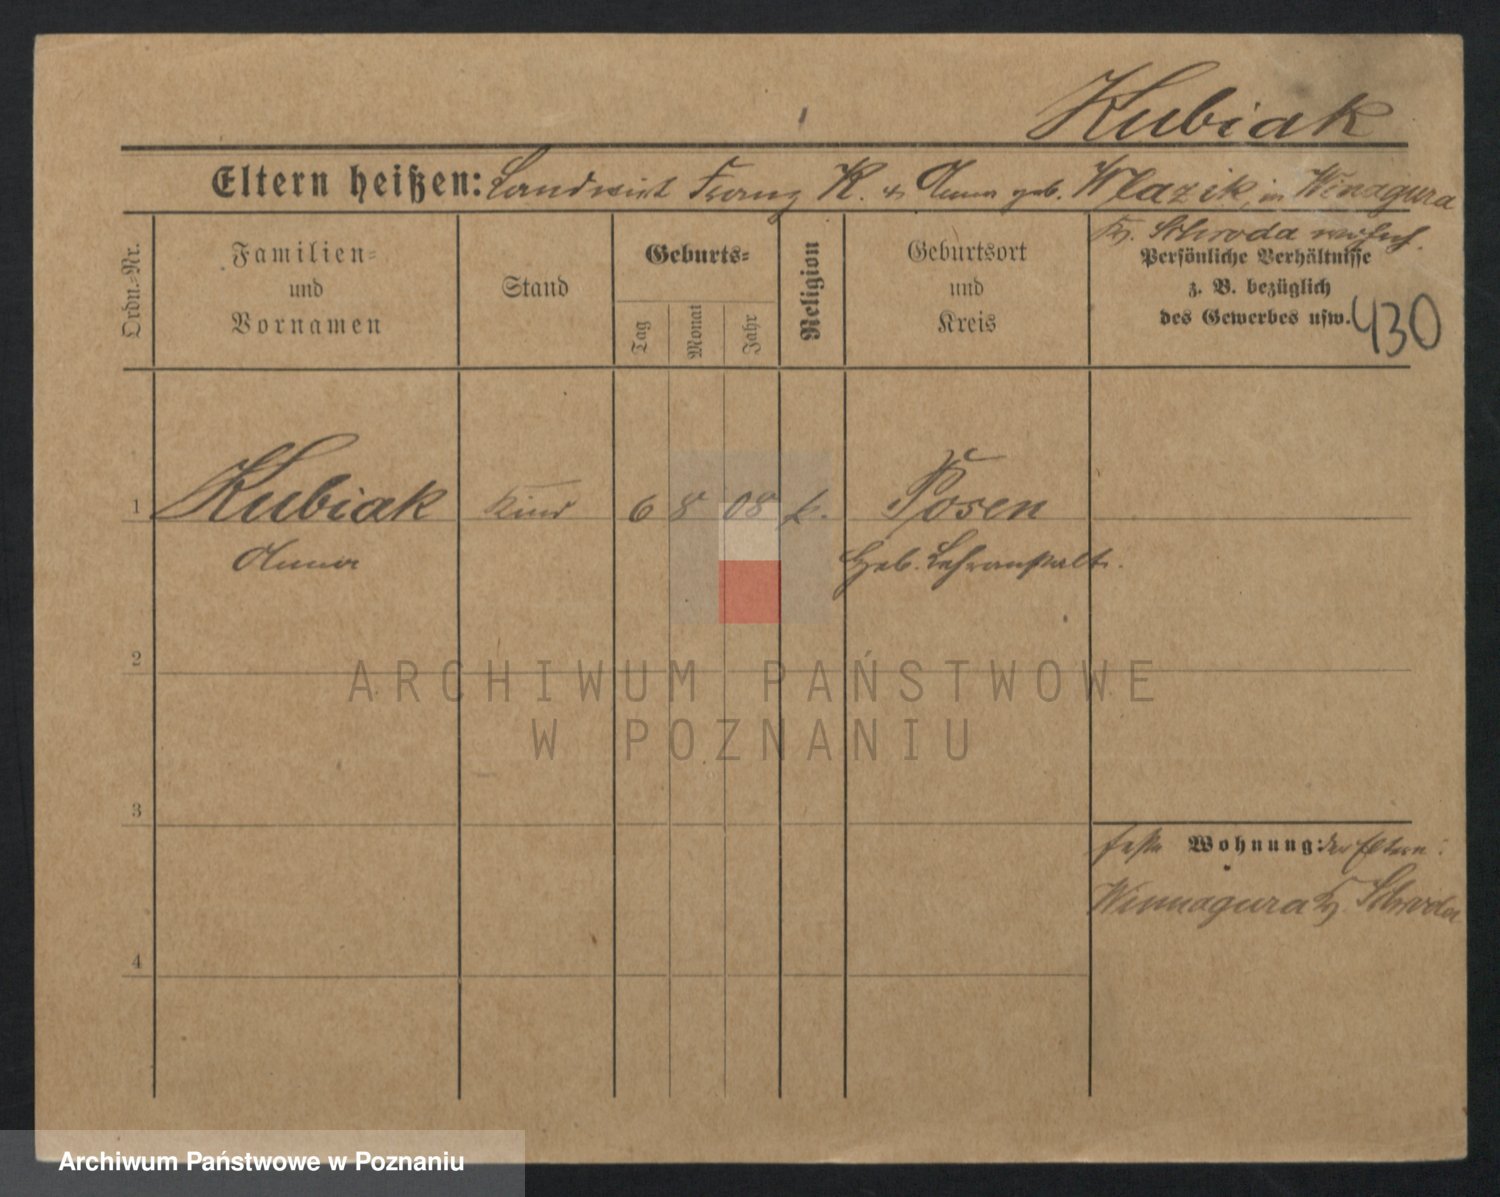 Kubiak
Eltern heißen: Landwirt Franz K. & Anna geb. Wlazik, in Winagura
Kr. Schroda wohnh.
Ordn.-Nr.
Familien-
und
Vornamen
Stand
Geburts-
Tag
Monat
Jahr
Religion
Geburtsort
und
Kreis
Persönliche Verhältnisse
z. B. bezüglich
des Gewerbes usw.
430
1
Kubiak
Anna
Kind
6
8
08
k.
Posen
Heb. Lehranstalt.
2
3
4
feste Wohnung: der Eltern:
Winnagura Kr. Schroda
ARCHIWUM PAŃSTWOWE
W POZNANIU
Archiwum Państwowe w Poznaniu